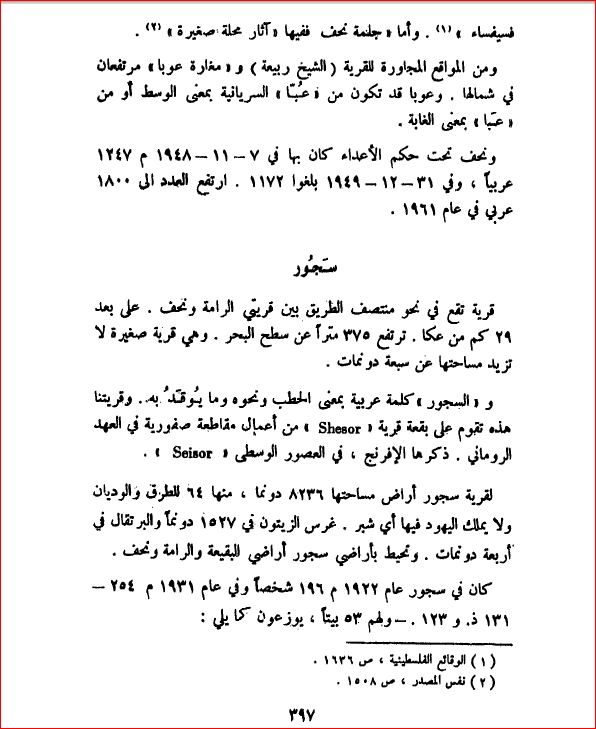 فسيفساء » (١) . وأما « جلمة نحف ففيها « آثار محلة صغيرة » (٢) .
ومن المواقع المجاورة للقرية ( الشيخ ربيعة ) و « مغارة عوبا » مرتفعان
في شمالها . وعوبا قد تكون من « عُبّا » السريانية بمعنى الوسط أو من
« عَبا » بمعنى الغابة .
ونحف تحت حكم الأعداء كان بها في ٧ – ١١ – ١٩٤٨ م ١٢٤٧
عربياً ، وفي ٣١ – ١٢ – ١٩٤٩ بلغوا ١١٧٢ . ارتفع العدد الى ١٨٠٠
عربي في عام ١٩٦١ .
سَجُور
قرية تقع في نحو منتصف الطريق بين قريتي الرامة ونحف . على بعد
٢٩ كم من عكا . ترتفع ٣٧٥ متراً عن سطح البحر . وهي قرية صغيرة لا
تزيد مساحتها عن سبعة دونمات .
و « السجور » كلمة عربية بمعنى الحطب ونحوه وما يُوقَدُ به . وقريتنا
هذه تقوم على بقعة قرية « Shesor » من أعمال مقاطعة صفورية في العهد
الروماني . ذكرها الإفرنج ، في العصور الوسطى « Seisor » .
لقرية سجور أراض مساحتها ٨٢٣٦ دونما ، منها ٦٤ للطرق والوديان
ولا يملك اليهود فيها أي شبر . غرس الزيتون في ١٥٢٧ دونماً والبرتقال في
أربعة دونمات . وتحيط بأراضي سجور أراضي للبقيعة والرامة ونحف .
كان في سجور عام ١٩٢٢ م ١٩٦ شخصاً وفي عام ١٩٣١ م ٢٥٤ –
١٣١ ذ. و ١٢٣ . – ولهم ٥٣ بيتاً ، يوزعون كما يلي :
( ١ ) الوقائع الفلسطينية ، ص ١٦٣٦ .
( ٢ ) نفس المصدر ، ص ١٥٠٨ .
٣٩٧